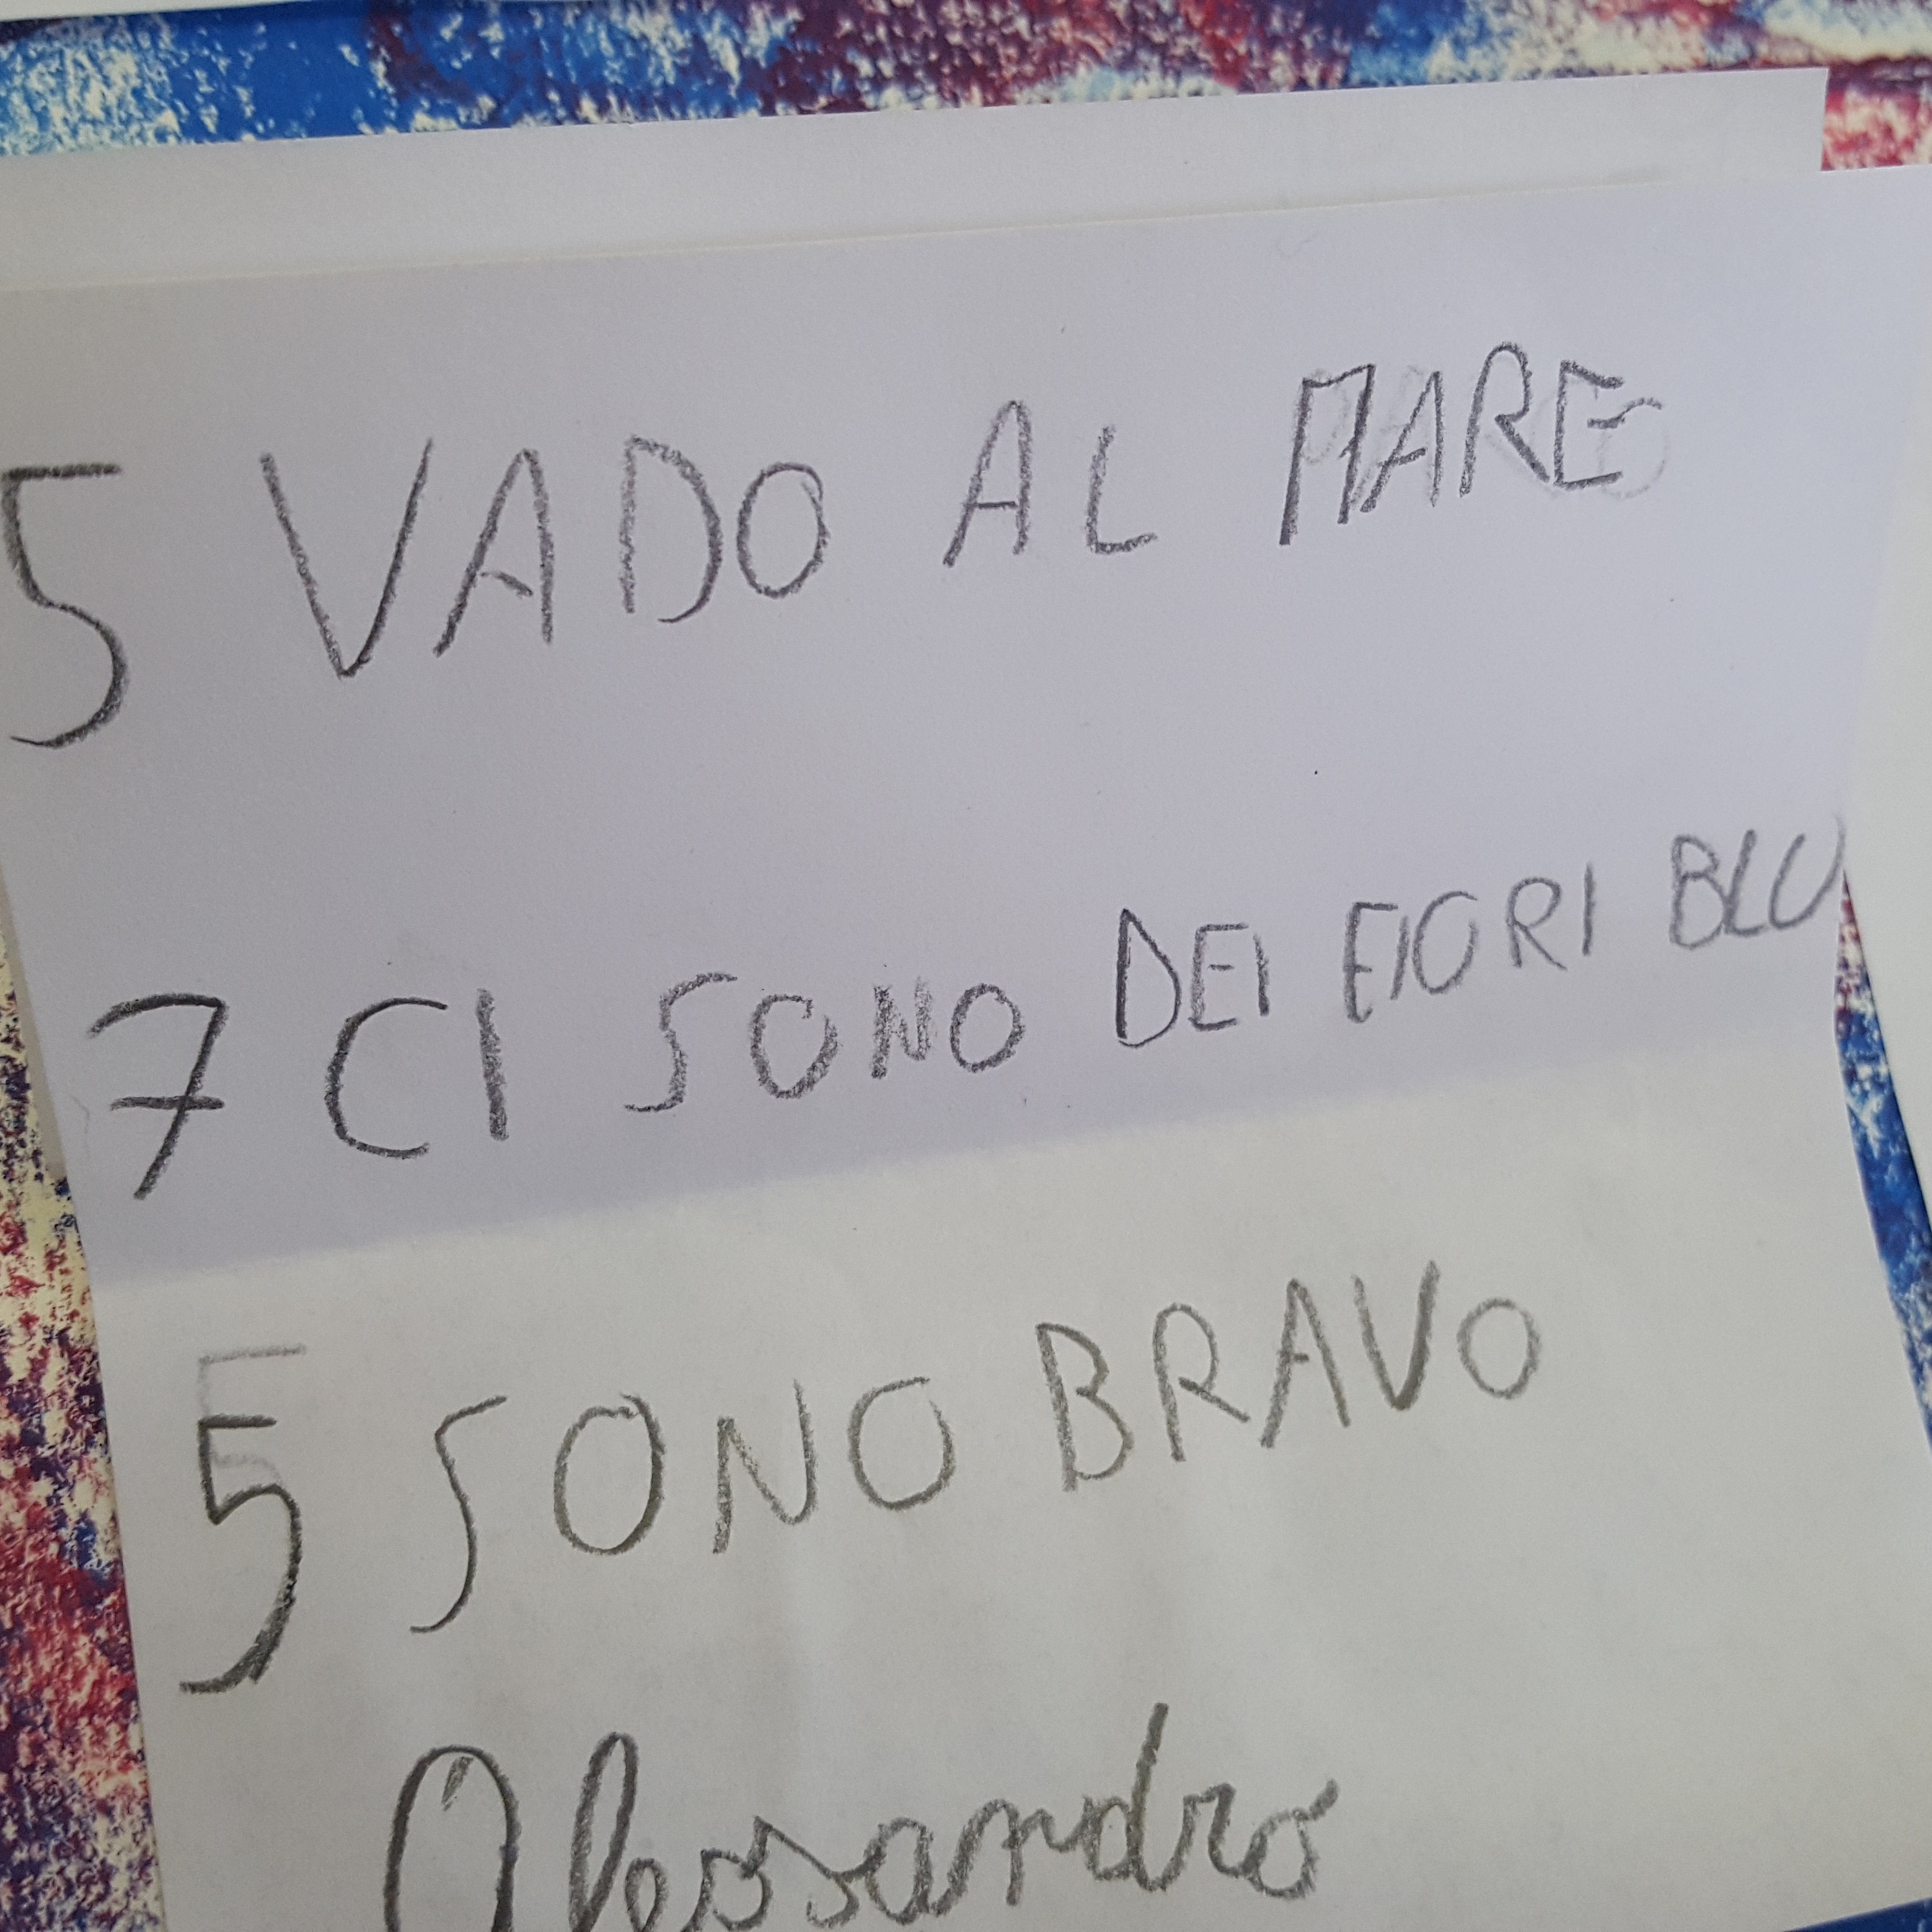 5 VADO AL MARE
7 CI SONO DEI FIORI BLU
5 SONO BRAVO
Alessandro